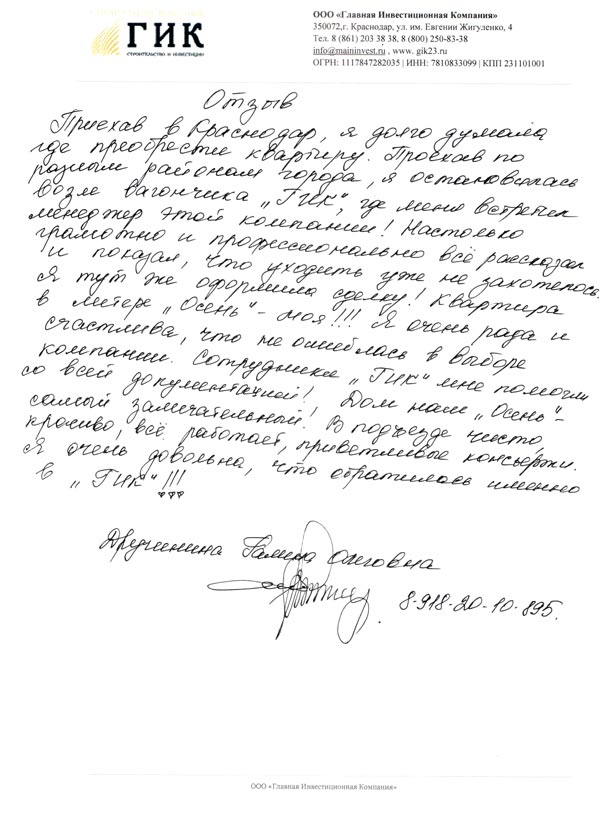 ГИК
СТРОИТЕЛЬСТВО И ИНВЕСТИЦИИ
ООО «Главная Инвестиционная Компания»
350072,г. Краснодар, ул. им. Евгении Жигуленко, 4
Тел. 8 (861) 203 38 38, 8 (800) 250-83-38
info@maininvest.ru , www. gik23.ru
ОГРН: 1117847282035 | ИНН: 7810833099 | КПП 231101001
Отзыв
Приехав в Краснодар, я долго думала
где преобрести квартиру. Проехав по
разным районам города, я остановилась
возле вагончика „ГИК“, где меня встретил
менеджер этой компании! Настолько
грамотно и профессионально всё рассказал
и показал, что уходить уже не захотелось.
Я тут же оформила сделку! Квартира
в литере „Осень“ - моя!!! Я очень рада и
счастлива, что не ошиблась в выборе
компании. Сотрудники „ГИК“ мне помогли
со всей документацией! Дом наш „Осень“-
самый замечательный! В подъезде чисто,
красиво, всё работает, приветливые консьержи.
Я очень довольна, что обратилась именно
в „ГИК“!!!
Дружинина Галина Олеговна
8-918-20-10-895.
ООО «Главная Инвестиционная Компания»